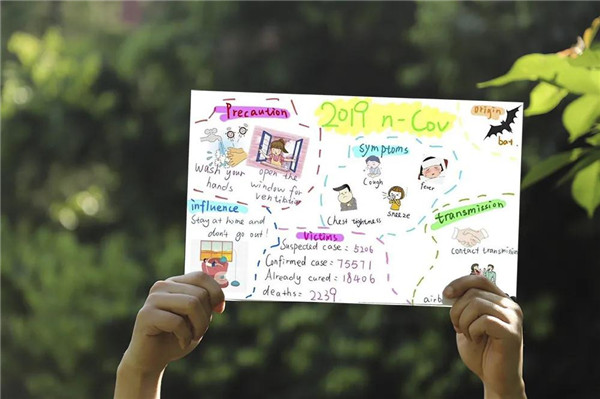 Precaution
wash your
hands
open the
window for
ventilation
2019 n-Cov
symptoms
Cough
fever
Chest tightness
sneeze
origin
bat
influence
Stay at home and
don't go out!
Victims
Suspected case = 5206
Confirmed case = 75571
Already cured = 18406
deaths = 2239
transmission
contact transmission